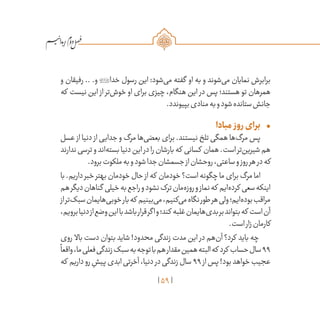 فصل دوم / رسالتیم
برابرش نمایان می‌شوند و به او گفته می‌شود: این رسول خداﷺ و. .. رفیقان و
همرهان تو هستند؛ پس در این هنگام، چیزی برای او خوش‌تر از این نیست که
جانش ستانده شود و به منادی بپیوندد.
• برای روز مبادا
پس مرگ‌ها همگی تلخ نیستند. برای بعضی‌ها مرگ و جدایی از دنیا از عسل
هم شیرین‌تر است. همان کسانی که بارشان را در این دنیا بسته‌اند و ترسی ندارند
که در هر روز و ساعتی، روحشان از جسمشان جدا شود و به ملکوت برود.
اما مرگ برای ما چگونه است؟ خودمان که از حال خودمان بهتر خبر داریم. با
اینکه سعی کرده‌ایم که نماز و روزه‌مان ترک نشود و راجع به خیلی گناهان دیگر هم
مراقب بوده‌ایم؛ ولی هر طور نگاه می‌کنیم، می‌بینیم که بار خوبی‌هایمان سبک‌تر از
آن است که بتواند بر بدی‌هایمان غلبه کند؛ و اگر قرار باشد با این وضع از دنیا برویم،
کارمان زار است.
چه باید کرد؟ آن‌هم در این مدت زندگی محدود! شاید بتوان دست بالا روی
۹۹ سال حساب کرد که البته همین مقدار هم با توجه به سبک زندگی فعلی ما، واقعاً
عجیب خواهد بود! پس از ۹۹ سال زندگی در دنیا، آخرتی ابدی پیشِ رو داریم که
| ۵۹ |